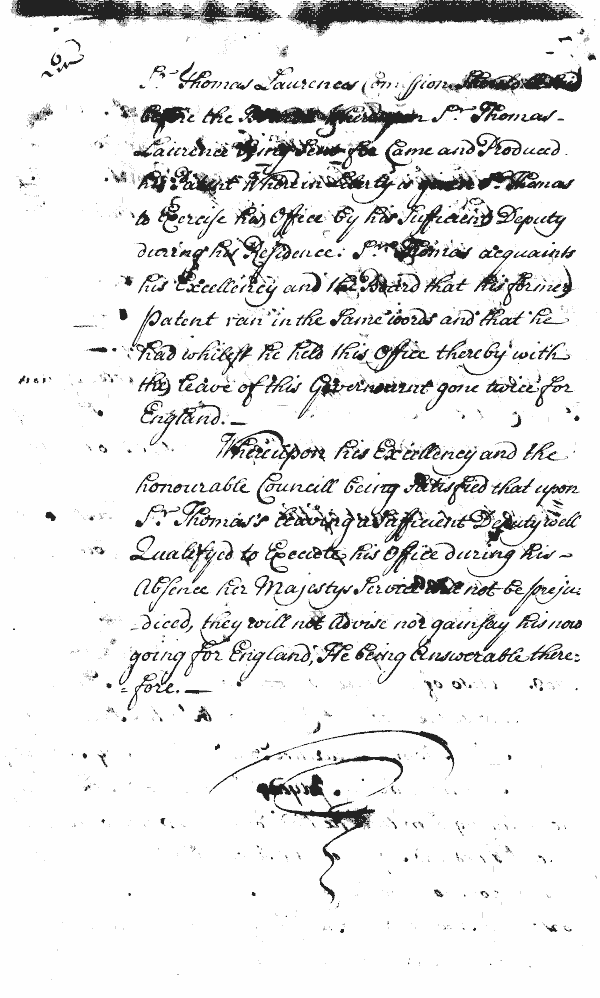 Sr. Thomas Laurences Comission should be laid
before the Board Whereupon Sr. Thomas
Laurence being Sent for Came and Produced
his Patent Wherein Liberty is given Sr. Thomas
to Exercise his Office by his Sufficient Deputy
during his Residence: Sr. Thomas acquaints
his Excellency and the Board that his former
Patent ran in the Same words and that he
had whilest he held this Office thereby with
the leave of this Governmt gone twice for
England.—
Whereupon his Excellency and the
honourable Councill being Satisfied that upon
Sr. Thomas's leaving a Sufficient Deputy well
Qualifyed to Execute his Office during his
Absence her Majestys Service will not be preju-
-diced, they will not Advise nor gainsay his now
going for England, He being Answerable there-
-fore.—